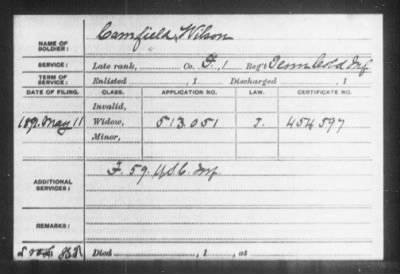 NAME OF SOLDIER: Camfield, Wilson
SERVICE: Late rank, Co. F, 1 Reg't Tenn Cold Inf.
TERM OF SERVICE: Enlisted , 1 Discharged , 1
DATE OF FILING. CLASS. APPLICATION NO. LAW. CERTIFICATE NO.
Invalid,
1891 May 11 Widow, 513.051 J. 454597
Minor,
ADDITIONAL SERVICES: F. 59. U.S.C. Inf.
REMARKS:
Died , 1 , at